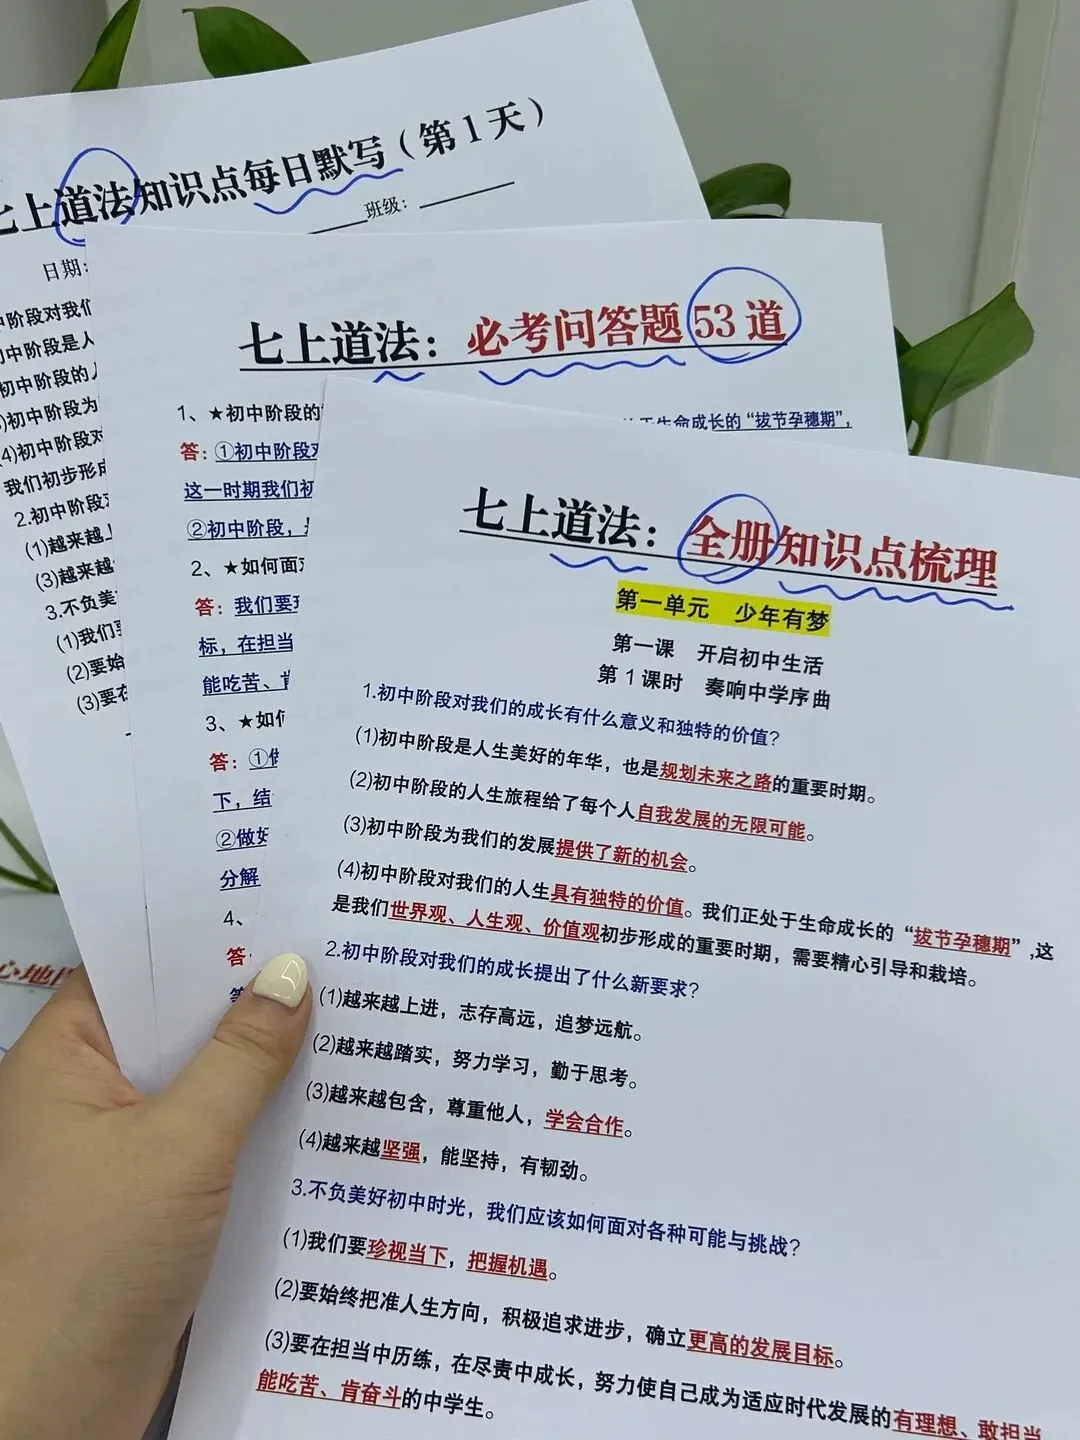 七上道法知识点每日默写（第1天）
班级：
日期：
中阶段对我们
初中阶段是人
初中阶段的
初中阶段为
(4)初中阶段对
我们初步形成
2.初中阶段
(1)越来越上
(3)越来越
3.不负美
(1)我们要
(2)要始
(3)要在
七上道法：必考问答题53道
1、★初中阶段的
于生命成长的“拔节孕穗期”，
答：①初中阶段对
这一时期我们初
②初中阶段，
2、★如何面对
答：我们要
标，在担当
能吃苦、肯
3、★如何
答：①
下，结
②做好
分解
4、
答
七上道法：全册知识点梳理
第一单元 少年有梦
第一课 开启初中生活
第1课时 奏响中学序曲
1.初中阶段对我们的成长有什么意义和独特的价值?
(1)初中阶段是人生美好的年华，也是规划未来之路的重要时期。
(2)初中阶段的人生旅程给了每个人自我发展的无限可能。
(3)初中阶段为我们的发展提供了新的机会。
(4)初中阶段对我们的人生具有独特的价值。我们正处于生命成长的“拔节孕穗期”,这
是我们世界观、人生观、价值观初步形成的重要时期，需要精心引导和栽培。
2.初中阶段对我们的成长提出了什么新要求?
(1)越来越上进，志存高远，追梦远航。
(2)越来越踏实，努力学习，勤于思考。
(3)越来越包含，尊重他人，学会合作。
(4)越来越坚强，能坚持，有韧劲。
3.不负美好初中时光，我们应该如何面对各种可能与挑战?
(1)我们要珍视当下，把握机遇。
(2)要始终把准人生方向，积极追求进步，确立更高的发展目标。
(3)要在担当中历练，在尽责中成长，努力使自己成为适应时代发展的有理想、敢担当、
能吃苦、肯奋斗的中学生。